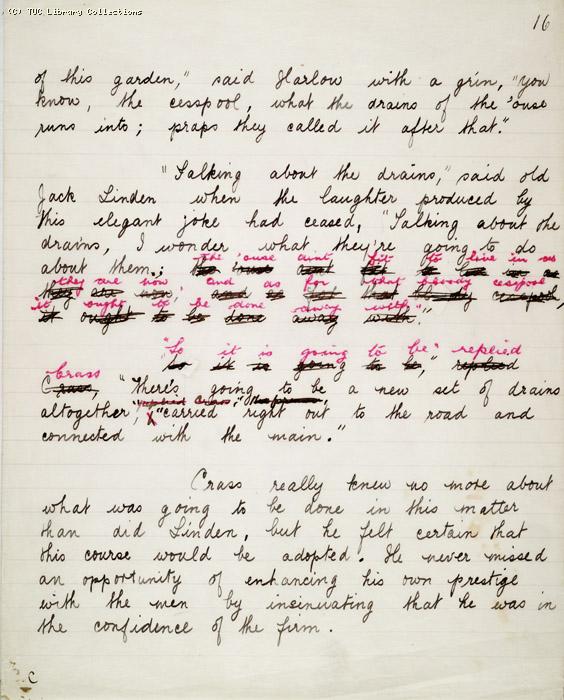 (C) TUC Library Collections
16
of this garden," said Harlow with a grin, "you
know, the cesspool, what the drains of the 'ouse
runs into; praps they called it after that."
"Talking about the drains," said old
Jack Linden when the laughter produced by
this elegant joke had ceased, "Talking about the
drains, I wonder what they're going to do
about them; the 'ouse aint fit to live in as
they are now, and as for that bloody cesspool
it ought to be done away with."
"So it is going to be" replied
Crass, "There's going to be a new set of drains
altogether, replied Crass, "carried right out to the road and
connected with the main."
Crass really knew no more about
what was going to be done in this matter
than did Linden, but he felt certain that
this course would be adopted. He never missed
an opportunity of enhancing his own prestige
with the men by insinuating that he was in
the confidence of the firm.
C